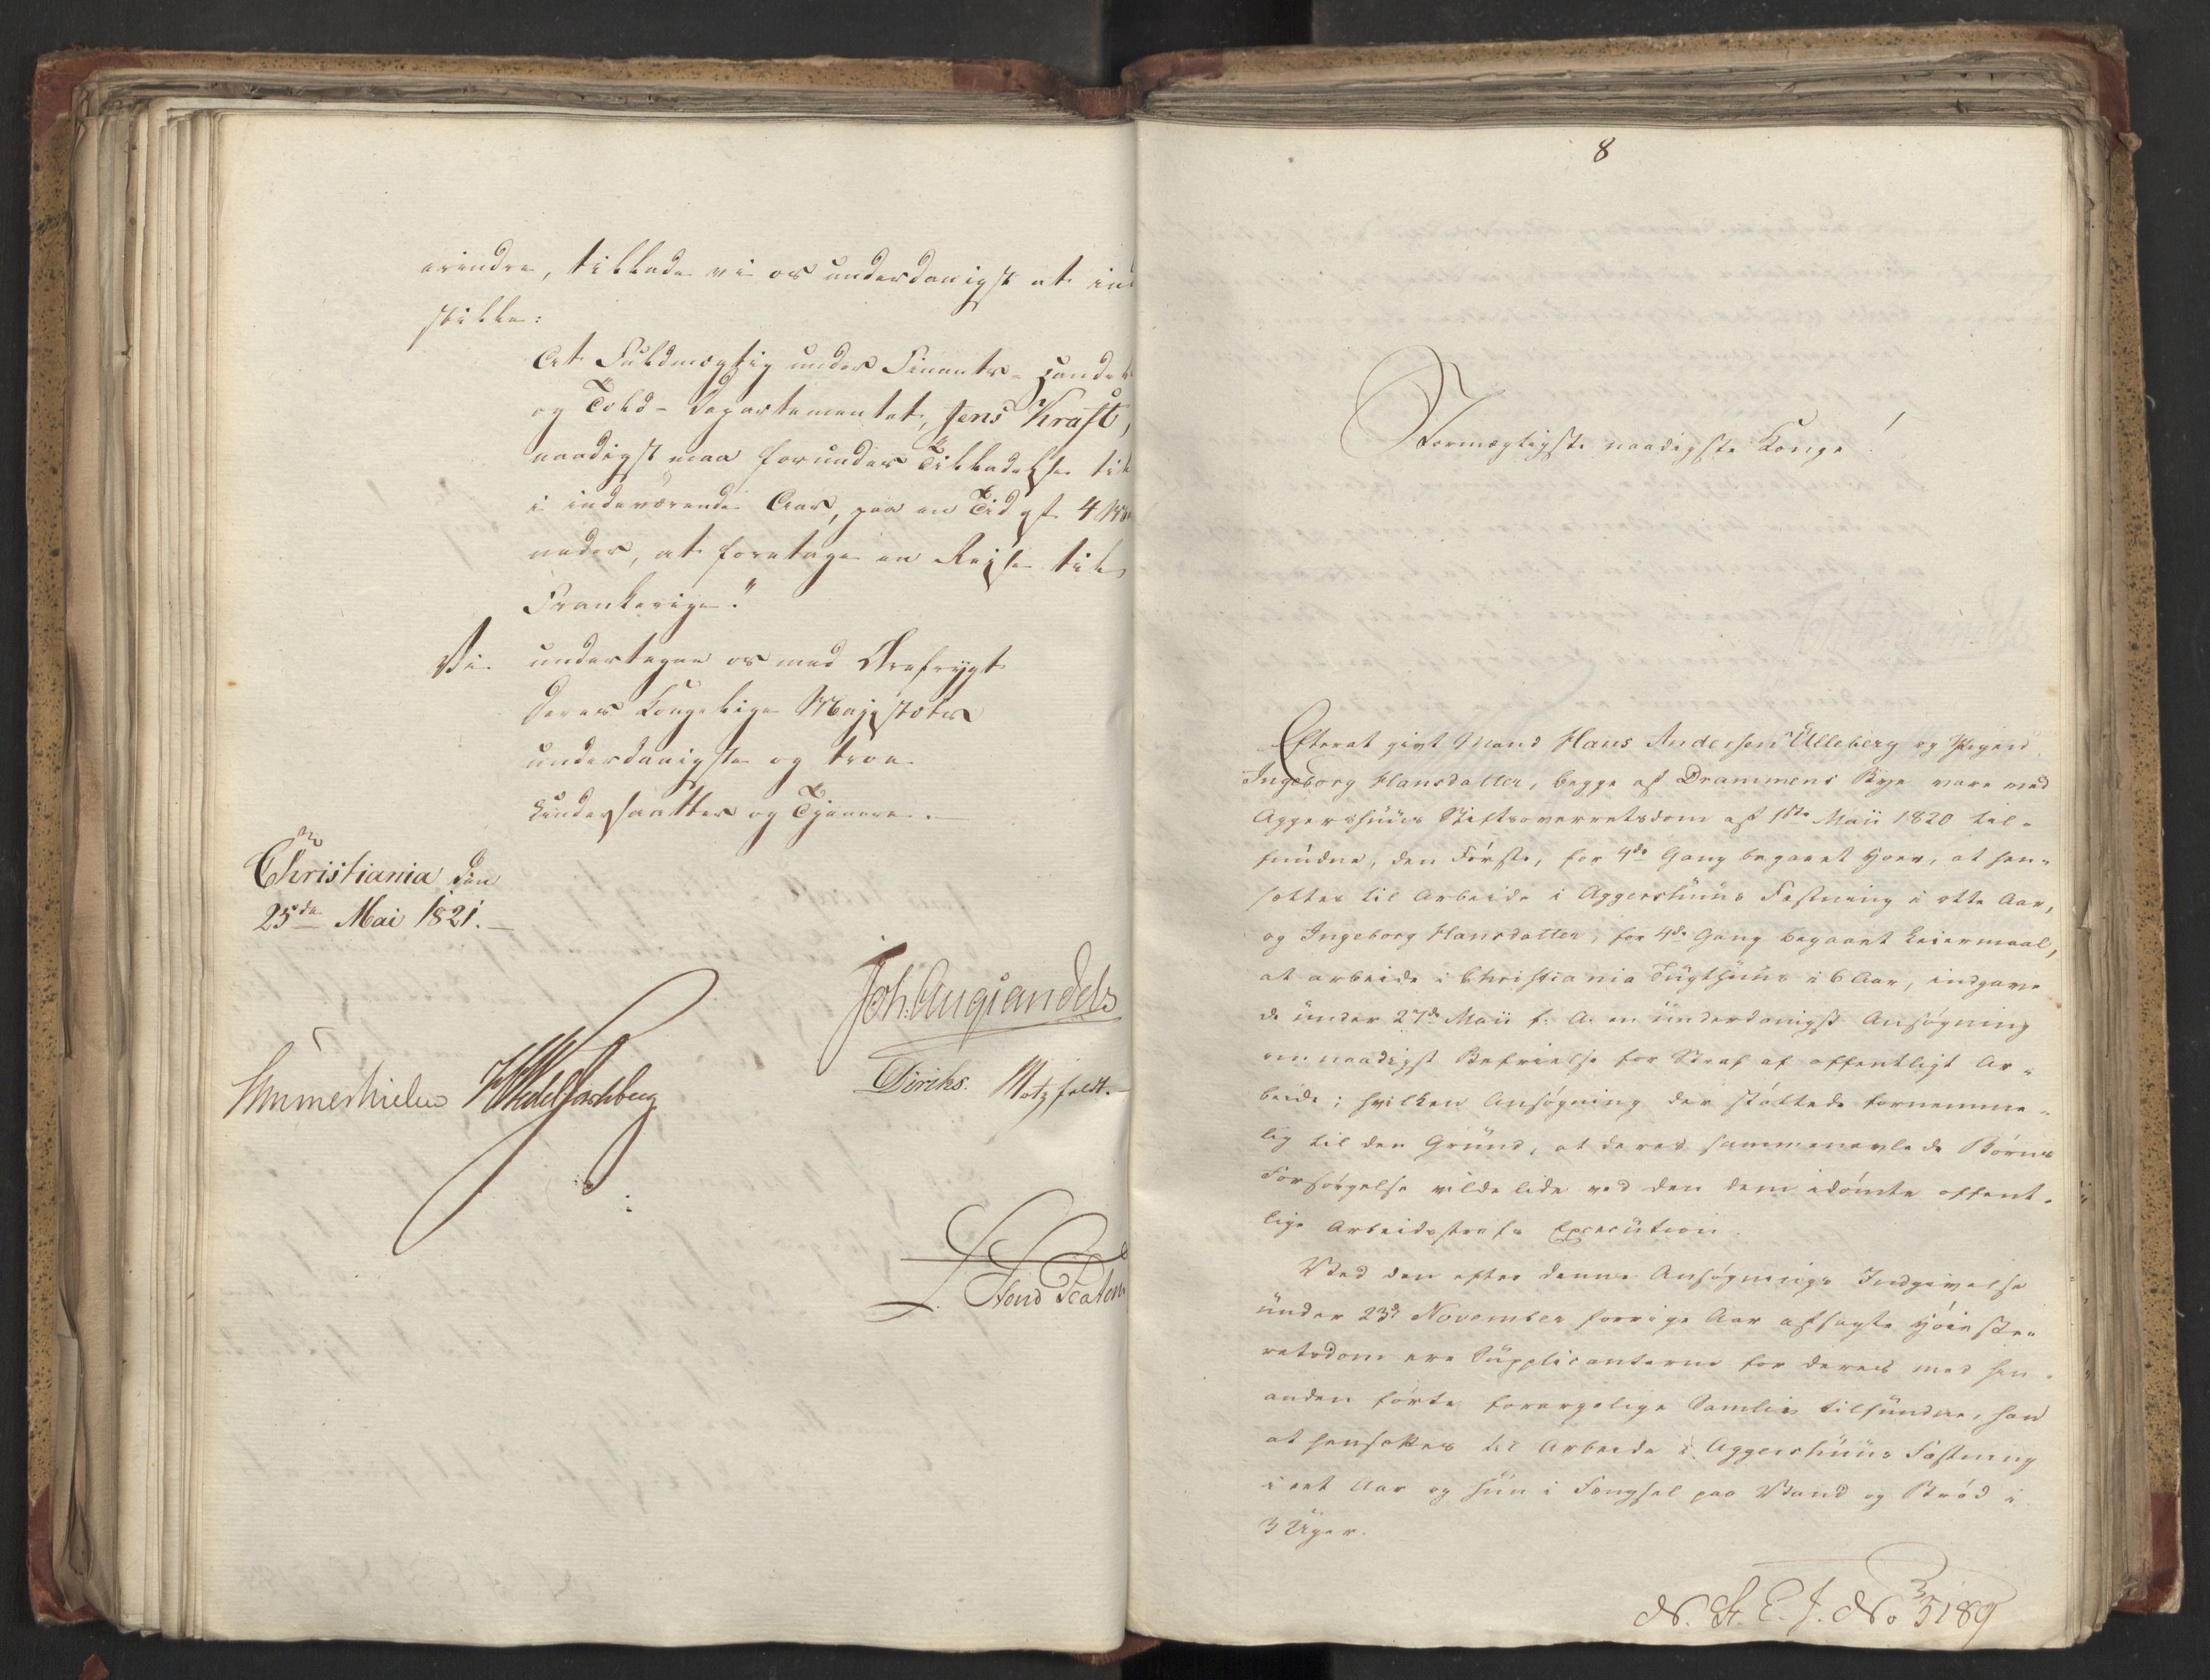 erindre, tillade vi os underdanigst at ind
stille:
At Fuldmægtig under Finants-Handels
og Told-Departementet, Jens Kraft,
naadigst maa forundes Tilladelse til
i indeværende Aar, paa en Tid af 4 Maa
neder, at foretage en Reise til
Frankerige."
Vi undertegne os med Ærefrygt
Deres Kongelige Majestæts
underdanigste og troe
Undersaatter og Tjenere.
Christiania den
25de Mai 1821.
Joh. Aug Sandels
Sommerhielm HWedelJarlsberg
Diriks. Motzfeldt.
8
Stormægtigste naadigste Konge!
Efterat givt Mand Hans Andersen Ulleberg og Pigen
Ingeborg Hansdatter, begge af Drammens Bye vare ved
Aggershuus Stiftsoverretsdom af 1ste Maii 1820 til-
fundne, den Første, for 4de Gang begaaet Hoer, at hen-
sættes til Arbeide i Aggershuus Fæstning i otte Aar,
og Ingeborg Hansdatter, for 4de Gang begaaet Leiermaal,
at arbeide i Christiania Tugthuus i 6 Aar, indgave
de under 27de Maii f. A. en underdanigst Ansøgning
om naadigst Befrielse for Straf af offentligt Ar-
beide; hvilken Ansøgning der støttede fornemme-
lig til den Grund, at deres sammenavlede Børns
Forsørgelse vilde lide ved den dem idømte offent-
lige Arbeidsstrafs Execution.
Ved den efter denne Ansøgnings Indgivelse
under 23de November forrige Aar afsagte Høieste-
retsdom ere Supplicanterne for deres med hin-
anden førte forargelige Samliv tilfundne, han
at hensættes til Arbeide i Aggershuus Fæstning
i eet Aar og hun i Fængsel paa Vand og Brød i
3 Uger.
N. St. E. J. No 3189